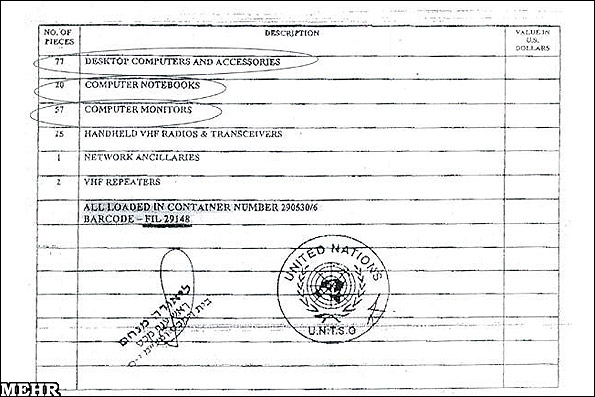 NO. OF PIECES DESCRIPTION VALUE IN U.S. DOLLARS
77 DESKTOP COMPUTERS AND ACCESSORIES
COMPUTER NOTEBOOKS
57 COMPUTER MONITORS
15 HANDHELD VHF RADIOS & TRANSCEIVERS
1 NETWORK ANCILLARIES
2 VHF REPEATERS
ALL LOADED IN CONTAINER NUMBER 290530/6
BARCODE – FIL 29148
UNITED NATIONS
U.N.T.S.O
מנחם
MEHR